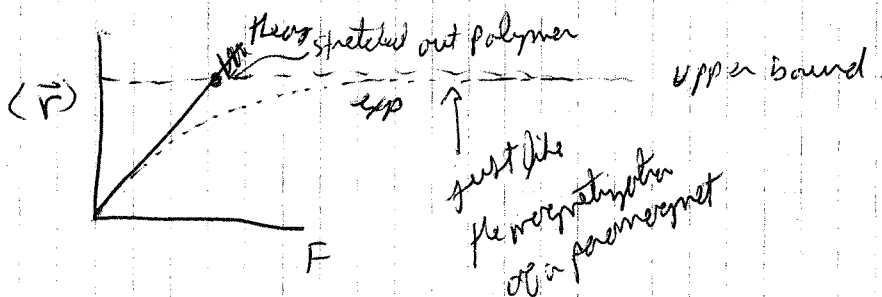 theory
stretched out polymer
⟨r⃗⟩
upper bound
exp
just like
the magnetization
of a paramagnet
F